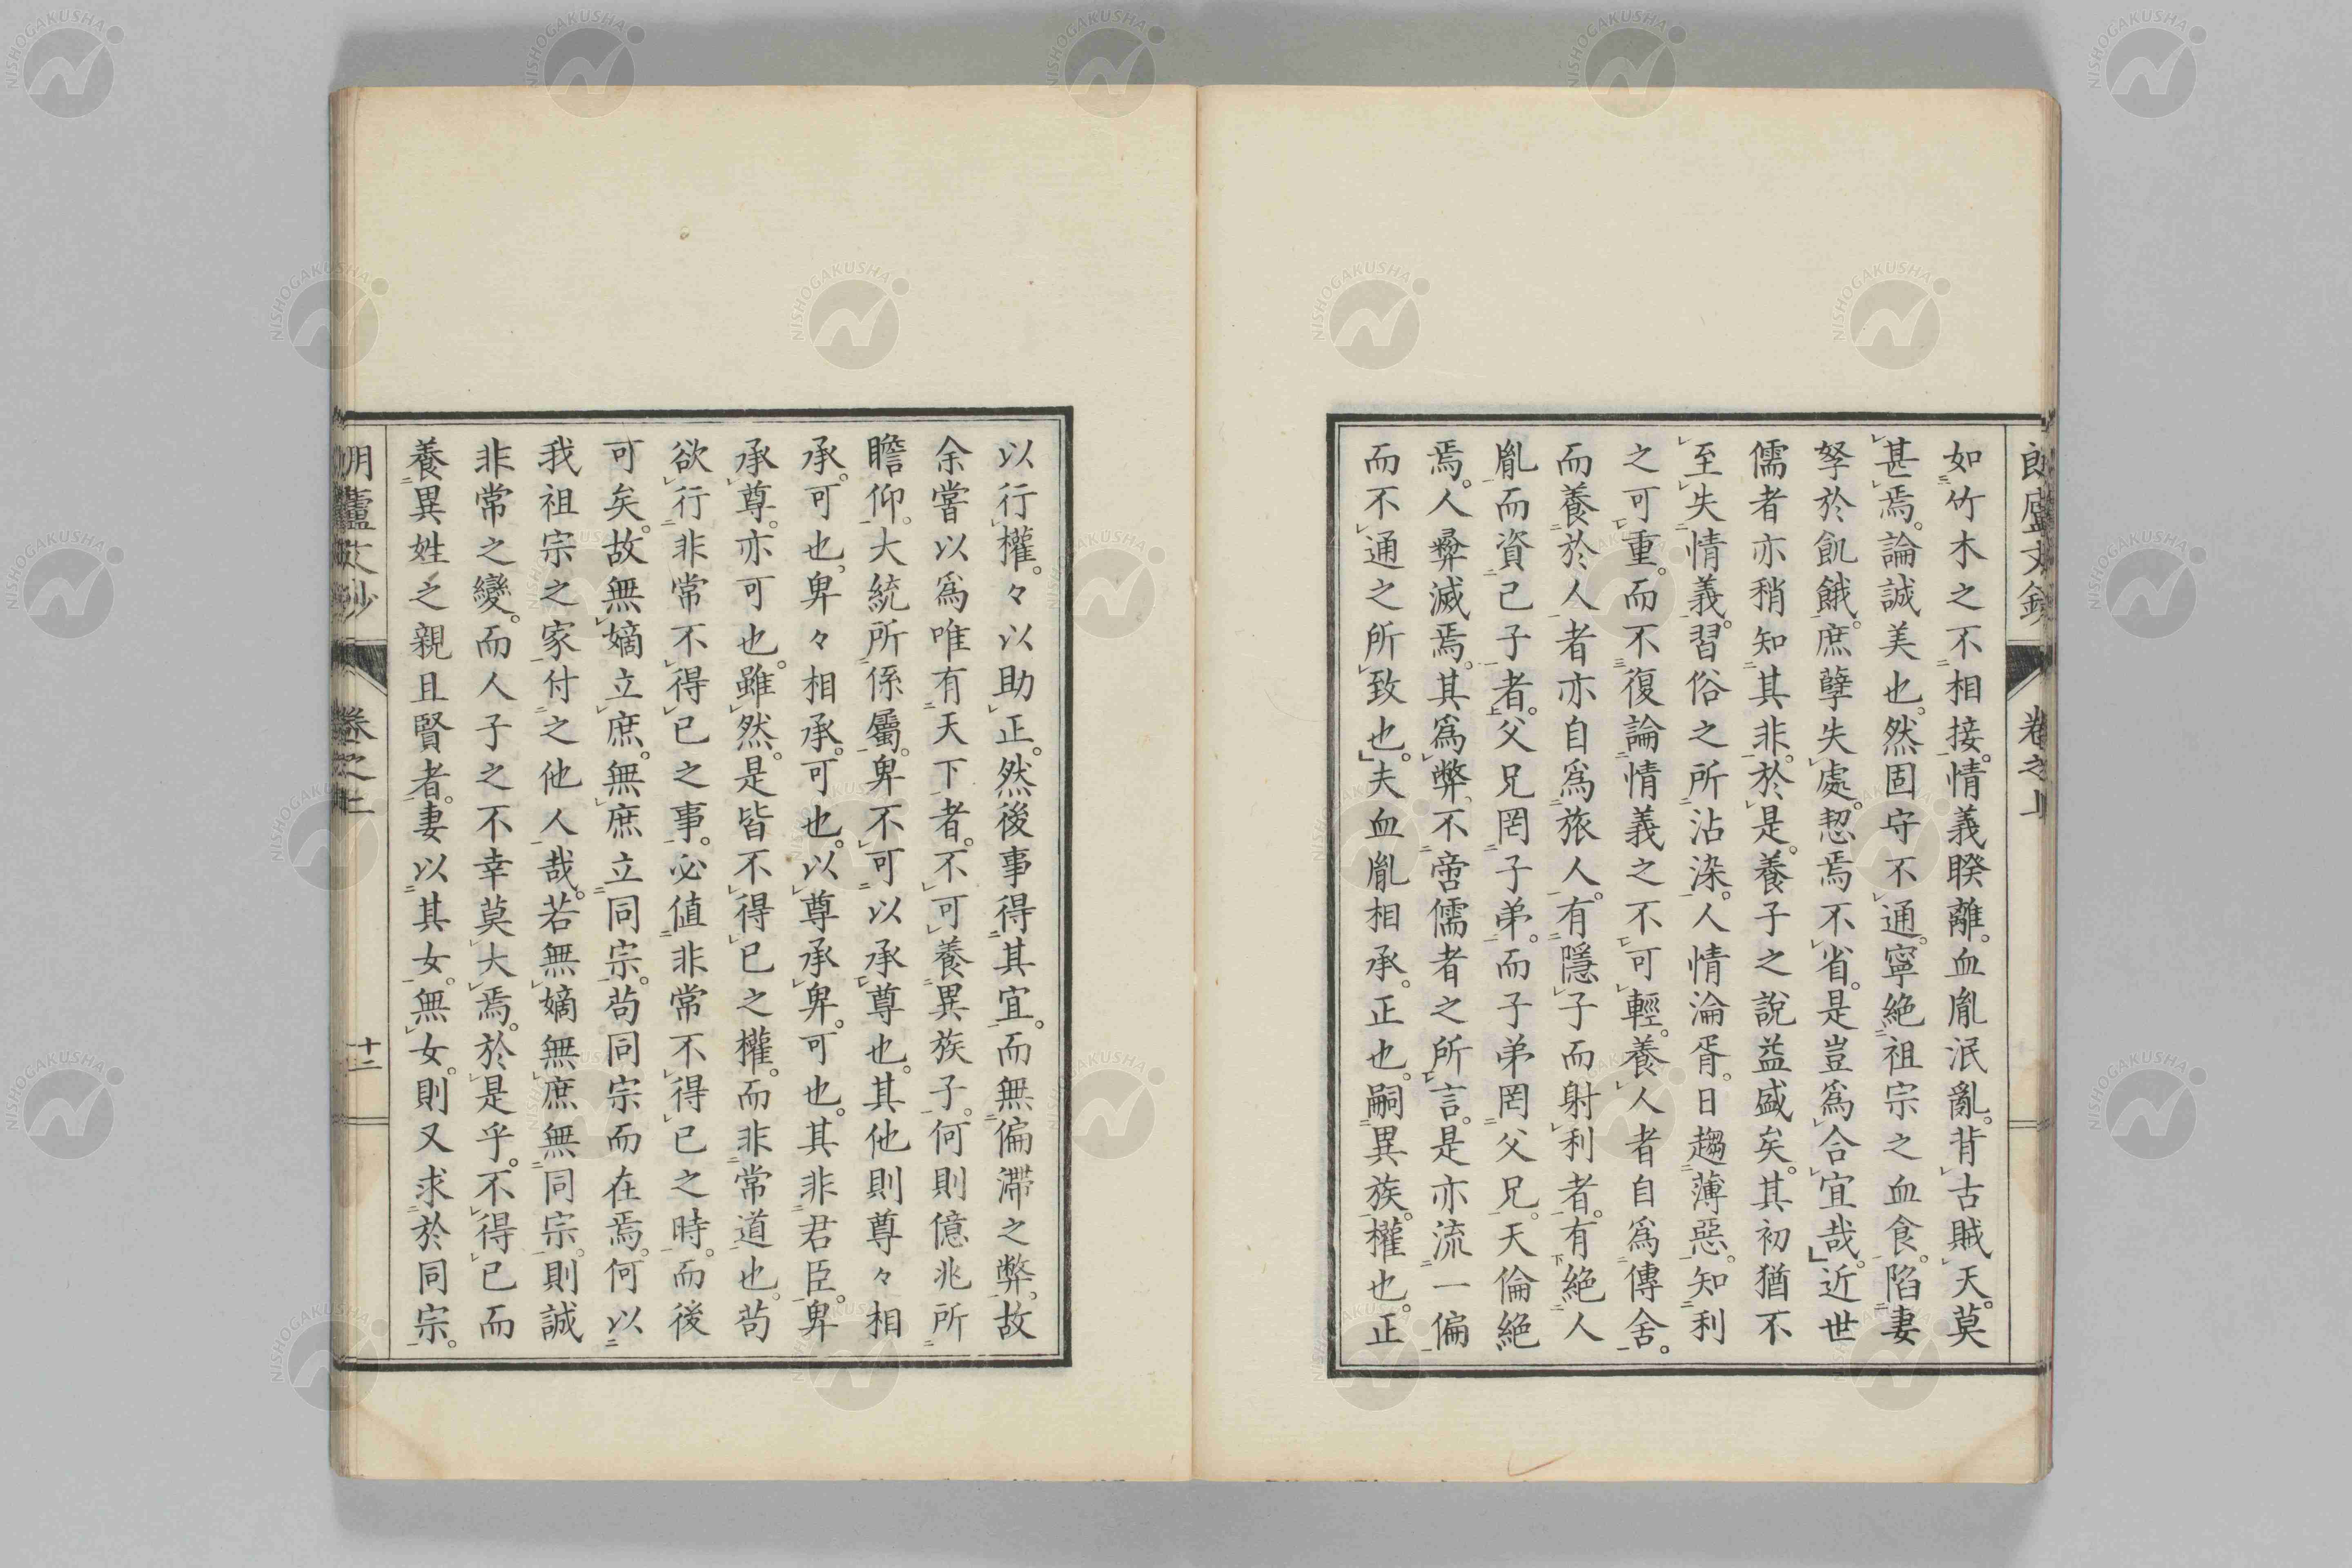 如竹木之不相接。情義睽離。血胤泯亂。背古賊天。莫
甚焉。論誠美也。然固守不通。寧絶祖宗之血食。陷妻
孥於飢餓。庶孽失處。恝焉不省。是豈爲合宜哉。」近世
儒者亦稍知其非。於是。養子之說益盛矣。其初猶不
至失情義。習俗之所沾染。人情淪胥。日趨薄惡。知利
之可重。而不復論情義之不可輕。養人者自爲傳舍。
而養於人者亦自爲旅人。有隱子而射利者。有絕人
胤而資己子者。父兄罔子弟。而子弟罔父兄。天倫絕
焉。人彜滅焉。其爲弊。不啻儒者之所言。是亦流一偏
而不通之所致也。」夫血胤相承。正也。嗣異族。權也。正
以行權。々以助正。然後事得其宜。而無偏滯之弊。故
余嘗以爲唯有天下者。不可養異族子。何則億兆所
瞻仰。大統所係屬。卑不可以承尊也。其他則尊々相
承。可也。卑々相承。可也。以尊承卑。可也。其非君臣。卑
承尊。亦可也。雖然。是皆不得已之權。而非常道也。苟
欲行非常不得已之事。必値非常不得已之時。而後
可矣。故無嫡立庶。無庶立同宗。苟同宗而在焉。何以
我祖宗之家付之他人哉。若無嫡無庶無同宗。則誠
非常之變。而人子之不幸莫大焉。於是乎。不得已而
養異姓之親且賢者。妻以其女。無女。則又求於同宗。
十二
NISHOGAKUSHA